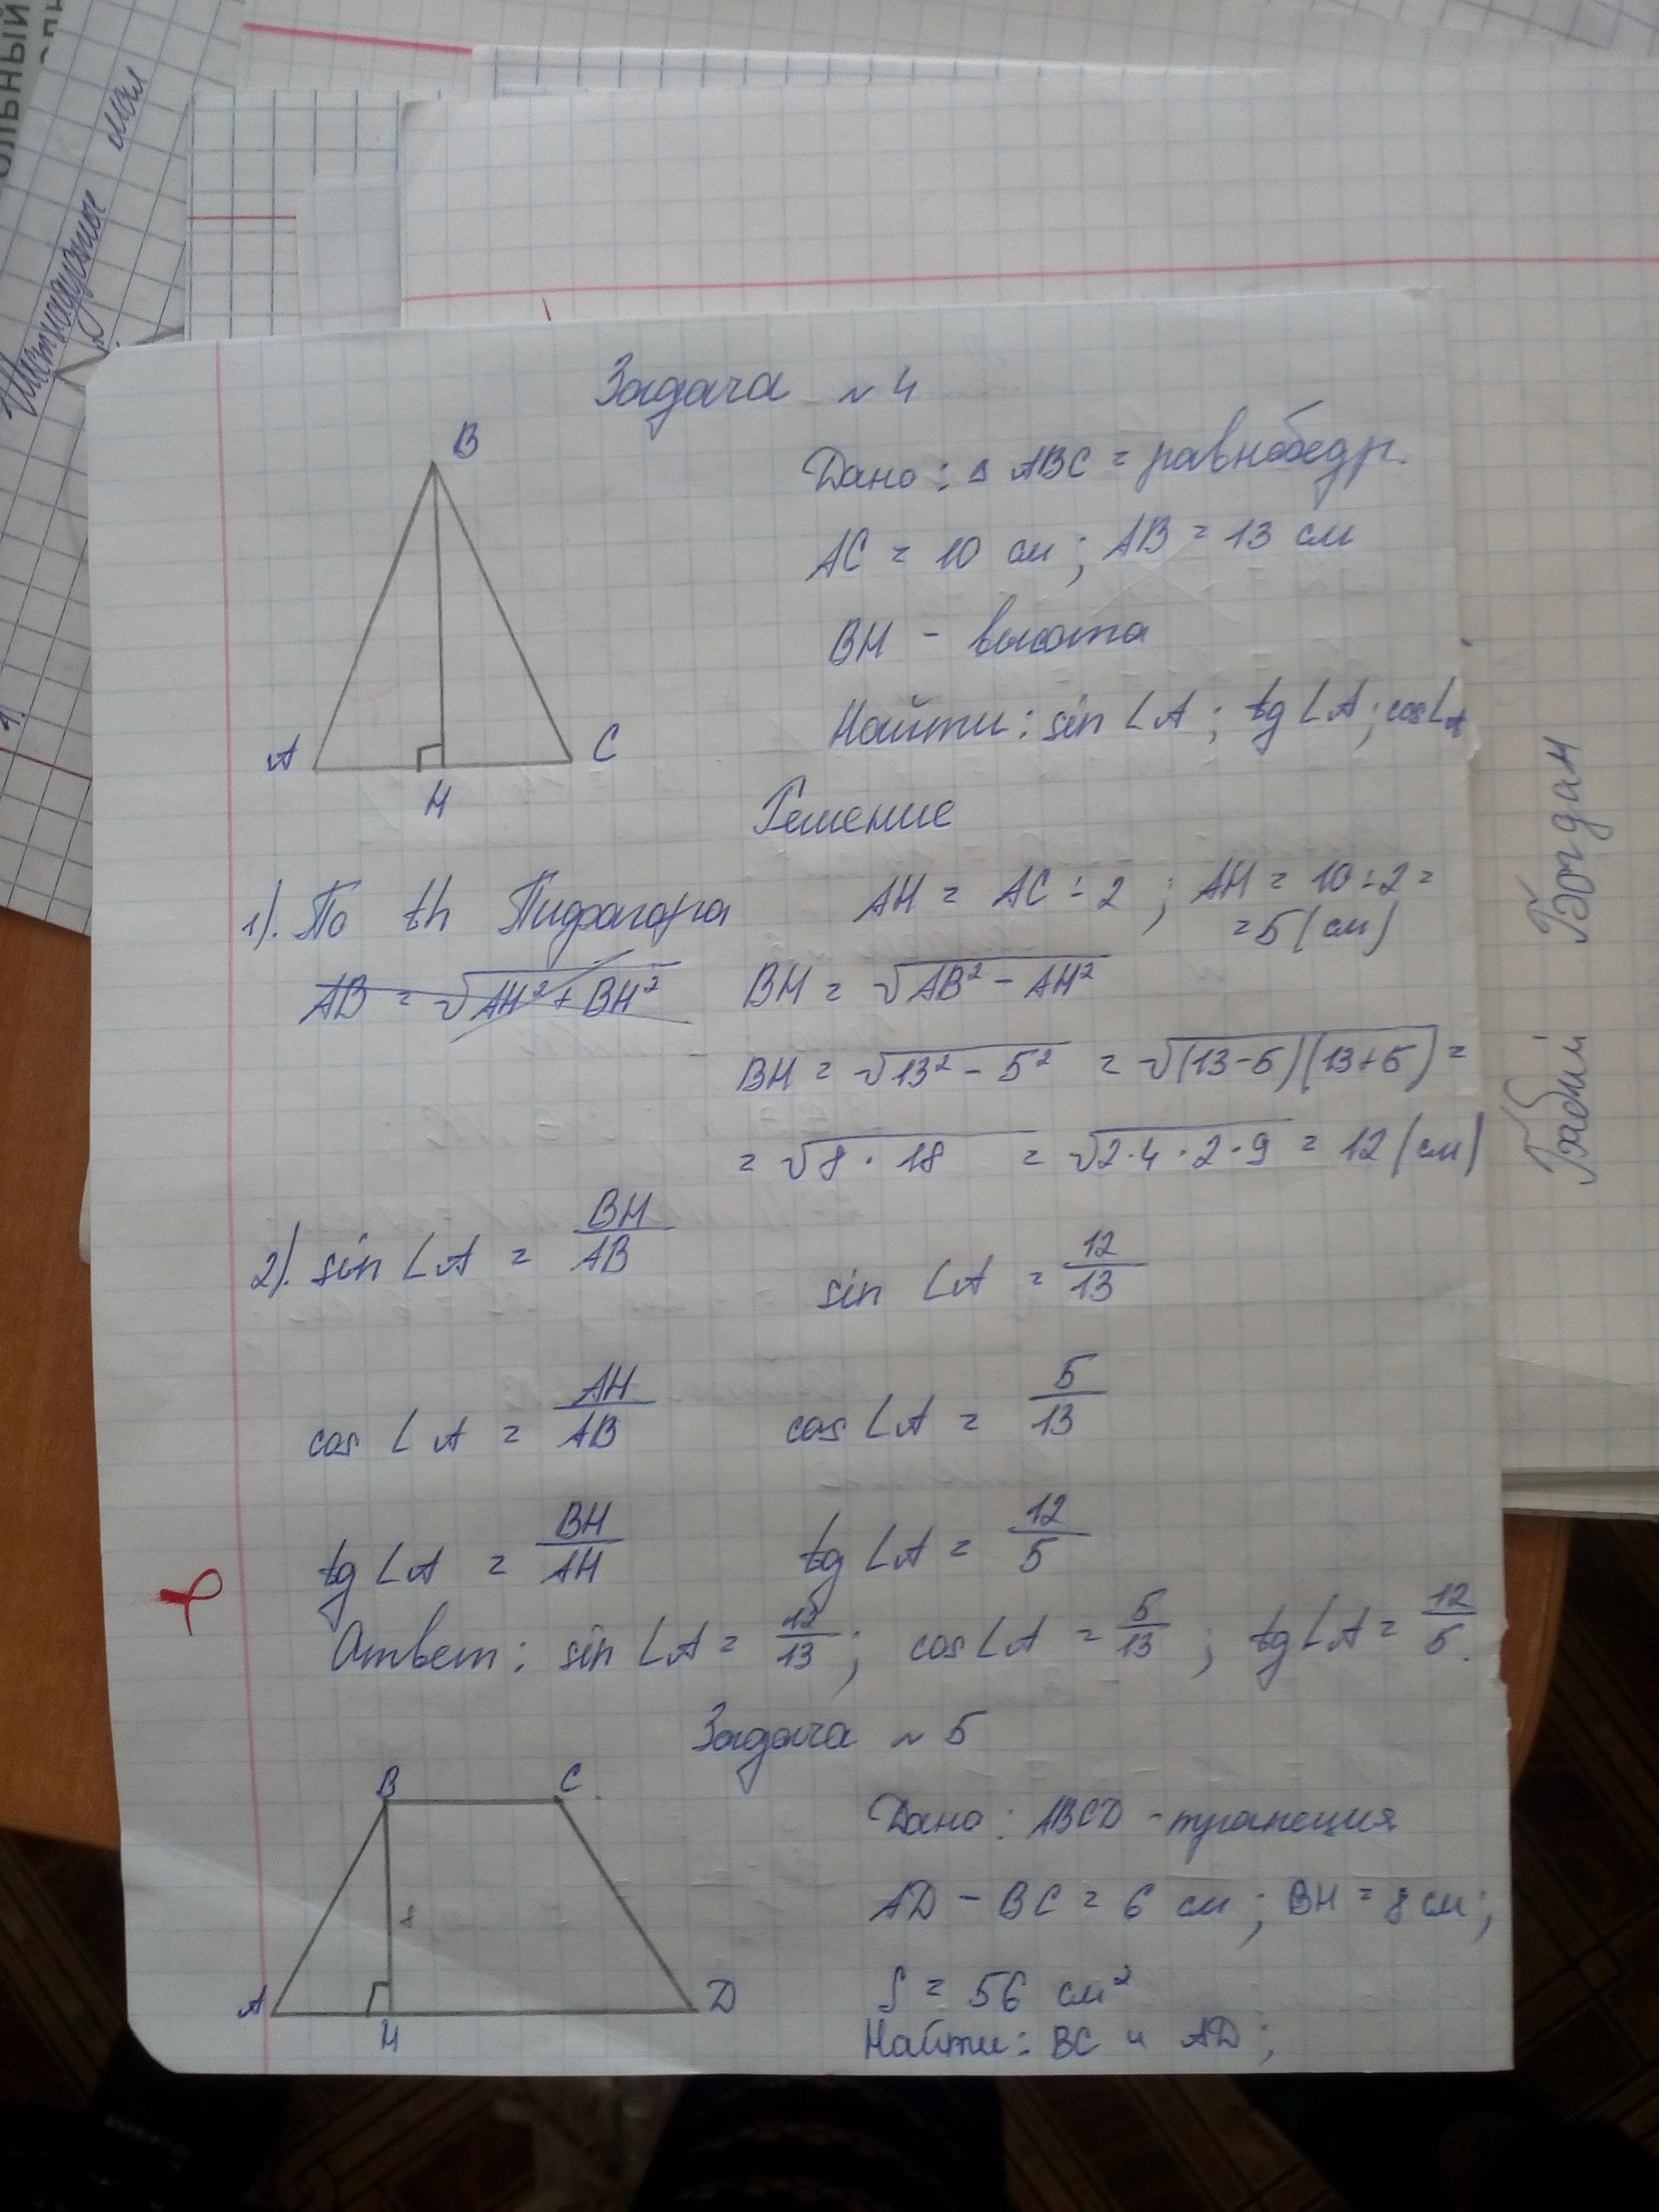 Задача № 4
B
A
H
C
Дано: △ ABC = равнобедр.
AC = 10 см; AB = 13 см
BH - высота
Найти: sin ∠A; tg ∠A; cos∠A
Решение
1). По th Пифагора
AH = AC : 2 ; AH = 10 : 2 =
= 5 (см)
AB = √AH² + BH²
BH = √AB² - AH²
BH = √13² - 5² = √(13-5)(13+5) =
= √8 · 18 = √2·4·2·9 = 12 (см)
2). sin ∠A = BH/AB sin ∠A = 12/13
cos ∠A = AH/AB cos ∠A = 5/13
tg ∠A = BH/AH tg ∠A = 12/5
Ответ: sin ∠A = 12/13; cos ∠A = 5/13; tg ∠A = 12/5.
Задача № 5
B
C
8
A
H
D
Дано: ABCD - трапеция
AD - BC = 6 см; BH = 8 см;
S = 56 см²
Найти: BC и AD;
Богдан